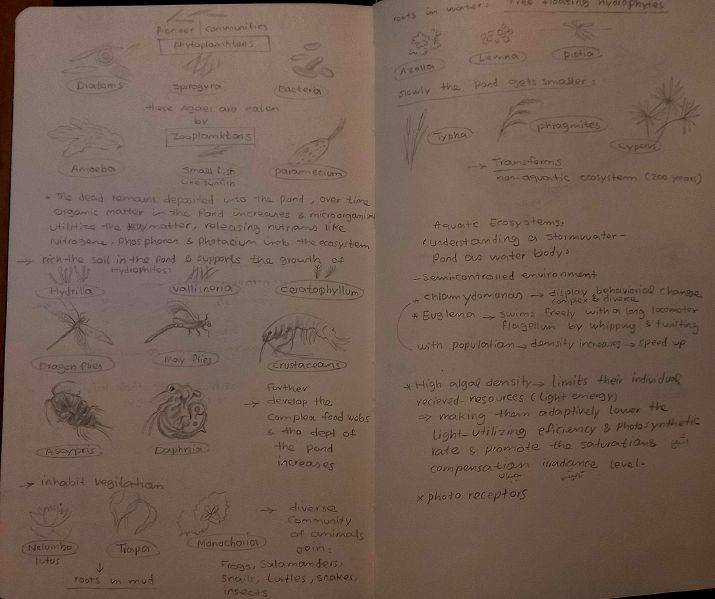 Pioneer communities
phytoplanktons
Diatoms
Spirogyra
Bactera
these Agaes are eaten
by
Zooplanktons
Amoeba
Small fish
like sunfish
paramecium
* The dead remains deposited into the pond, over time
organic matter in the pond increases & microorganism
utilitize the matter, releasing nutrians like
Nitrogene, Phosphoren & Photasium into the ecosystem
→ rich the soil in the pond & supports the growth of
Hydrophites:
Hydrilla
vallisneria
ceratophyllum
Dragon flies
May flies
Crustacoans
Ascypris
Daphnia
→ further
develop the
complex food webs
& the dept of
the pond
increases
→ inhabit vegitation
Nelumbo
lutus
Trapa
Monochoria
→ diverse
Community
of animals
join:
Frogs, Salamanders,
Snails, turtles, snakes,
insects
↓
roots in mud
roots in water: Free floating hydrophytes
Azolla
Lemna
Pistia
slowly the pond gets smaller:
Typha
phragmites
Cyperus
→ Transforms
non-aquatic ecosystem (200 years)
Aquatic Ecosystems:
Understanding a Stormwater-
Pond as water body:
- Semi-controlled environment
* chlamydomonas → display behavioral change
complex & diverse
* Euglena → swims freely with a long locomoter
flagellum by whipping & twisting
with population → density increases → speed up
* High algal density → limits their individual
recieved-resources (light energy)
⇒ making them adaptively lower the
light-utilizing efficiency & photosynthetic
rate & promote the saturations
compensation irradance level.
* photo receptors